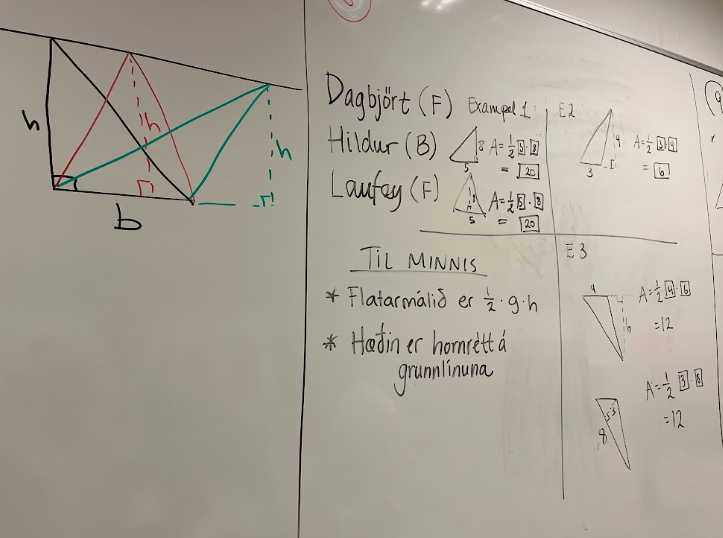 h
h
h
b
Dagbjört (F) Exampel 1
Hildur (B) 8 A = 1/2 5 · 8
5 = 20
Laufey (F) 8 A = 1/2 5 · 8
5 = 20
TIL MINNIS
* Flatarmálið er 1/2 · g · h
* Hæðin er hornrétt á
grunnlínuna
E2
4 A = 1/2 3 · 4
3 = 6
E3
4 A = 1/2 4 · 6
6 = 12
3 A = 1/2 3 · 8
8 = 12